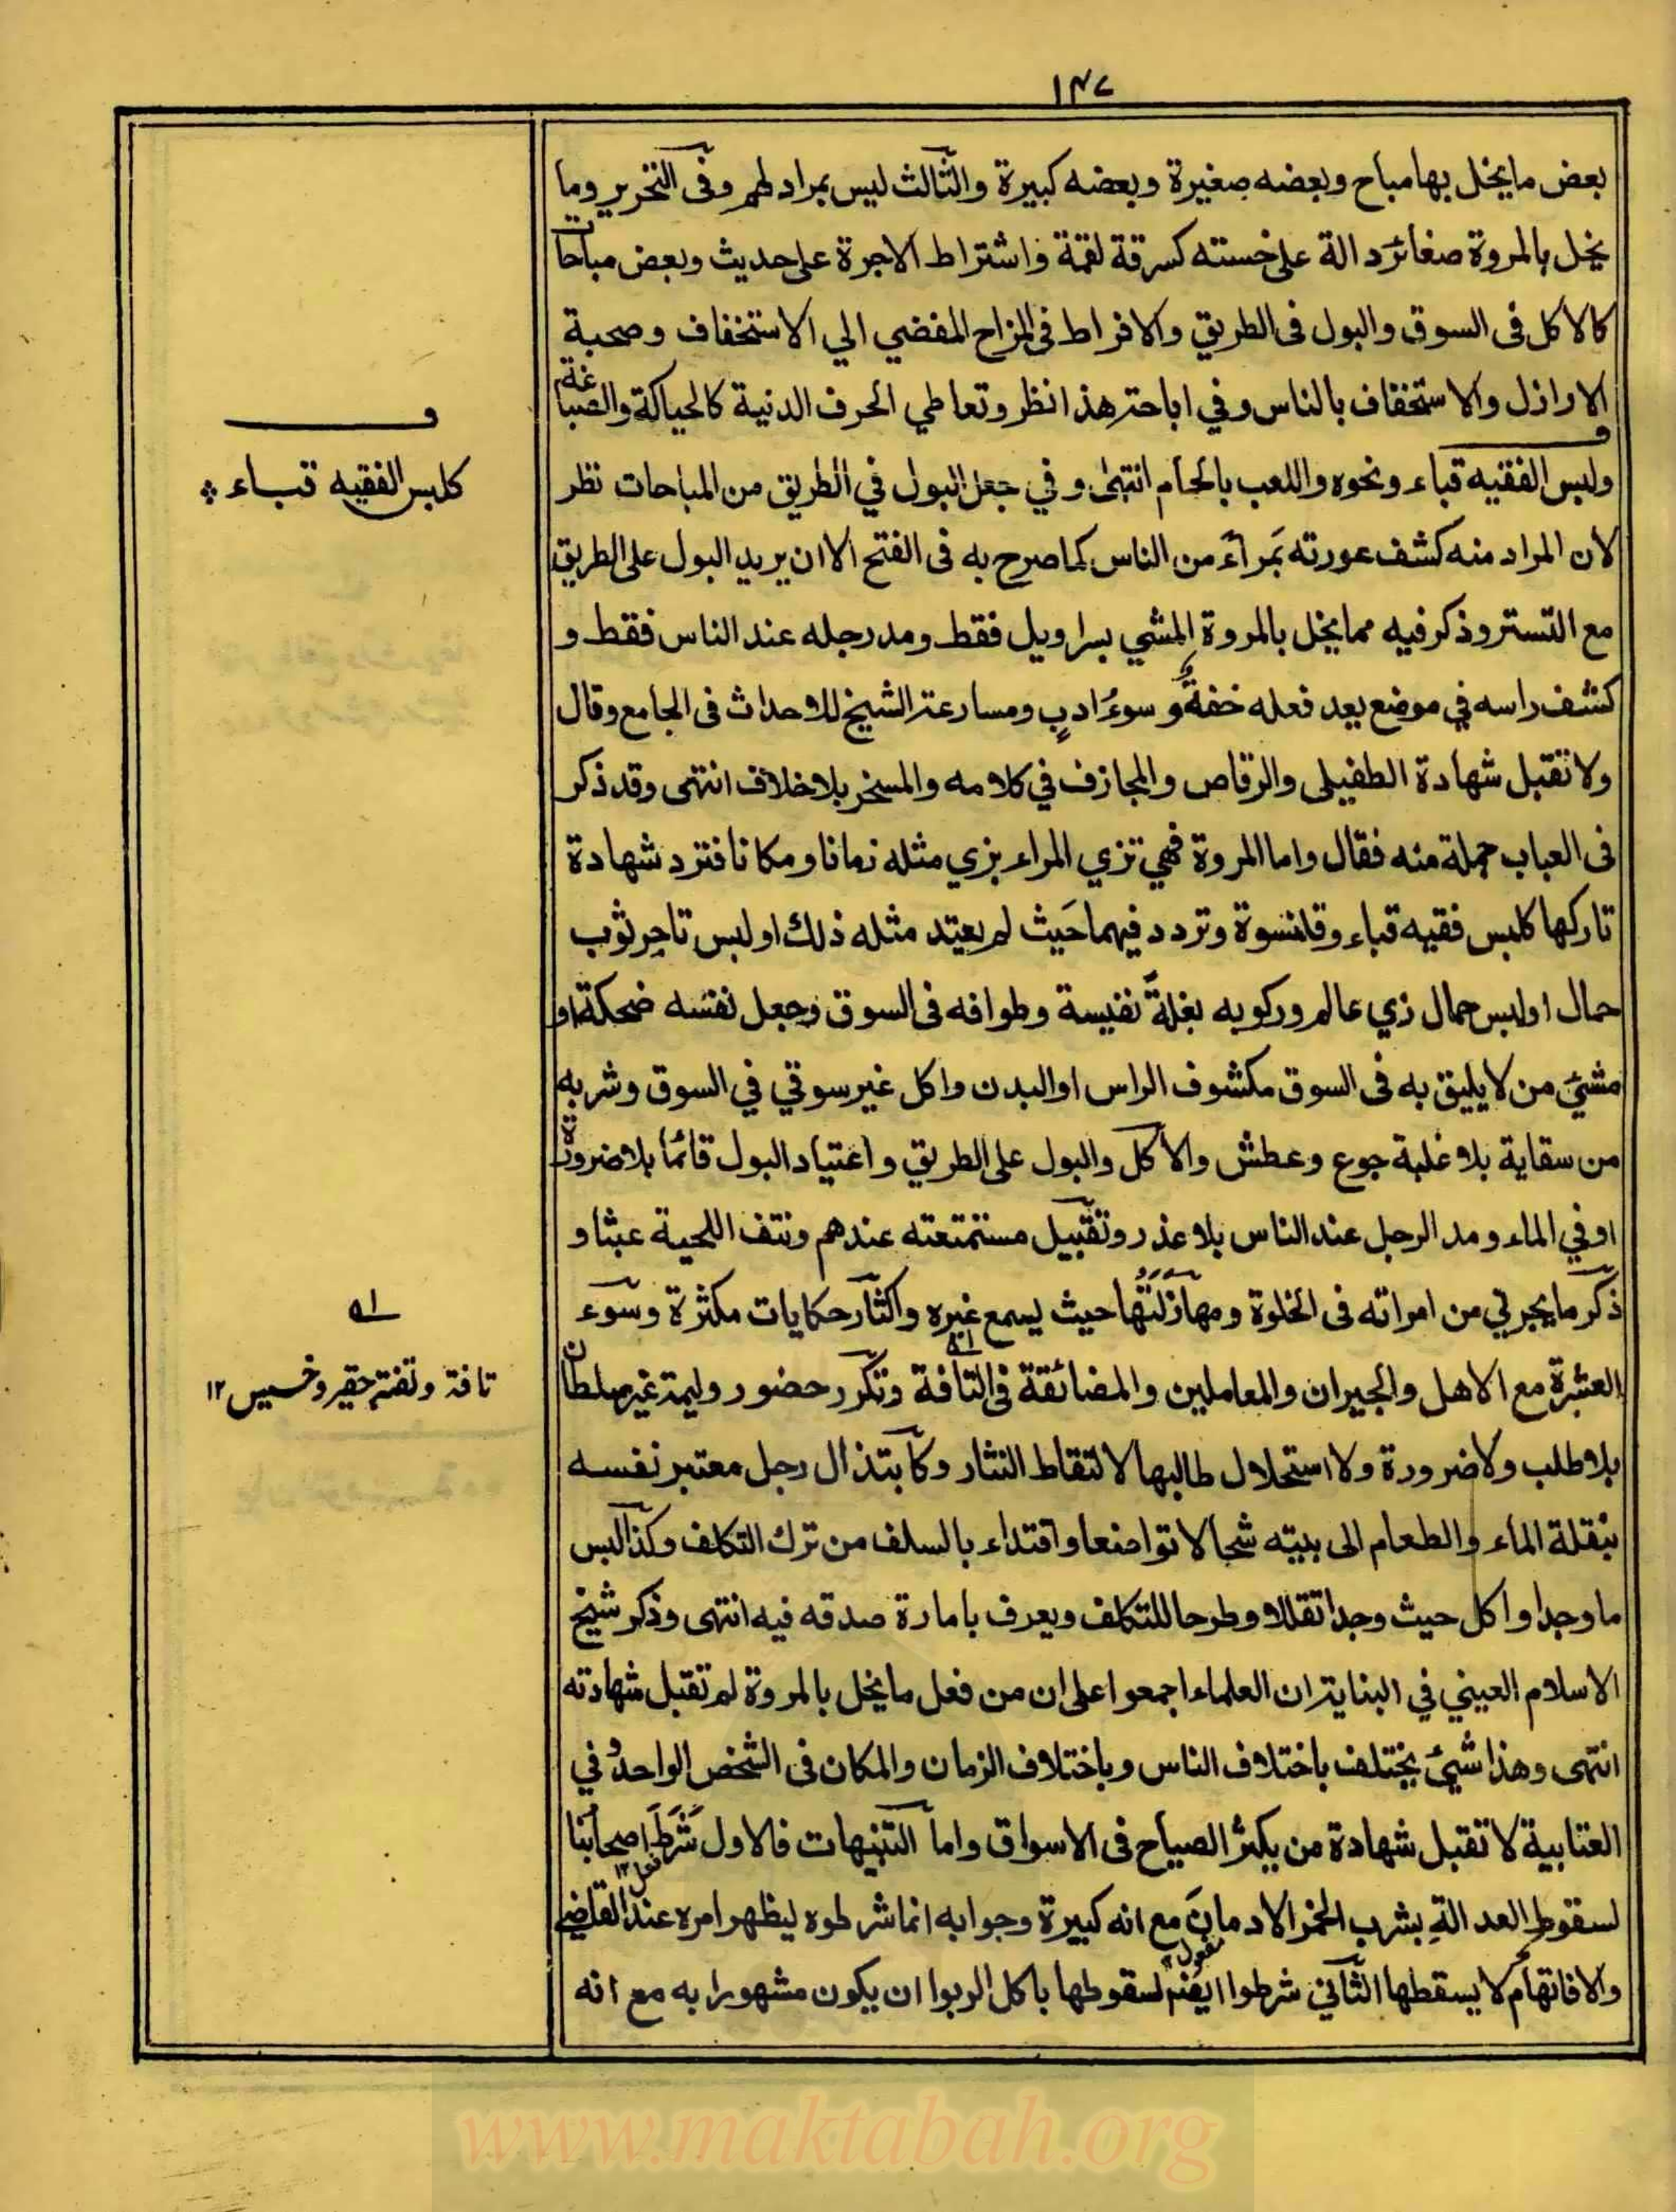 ١٤٧
بعض ما يخل بها مباح وبعضه صغيرة وبعضه كبيرة والثالث ليس بمراد لهم وفى التحرير وما
يخل بالمروة صغائر دالة على خسته كسرقة لقمة واشتراط الاجرة على حديث وبعض مباحات
كالاكل فى السوق والبول فى الطريق والافراط فى المزاح المفضي الي الاستخفاف وصحبة
الاراذل والاستخفاف بالناس وفي اباحة هذا نظر وتعاطي الحرف الدنية كالحياكة والصباغة
ولبس الفقيه قباء ونحوه واللعب بالحمام انتهى وفي جعل البول في الطريق من المباحات نظر
لان المراد منه كشف عورته بمرأى من الناس كما صرح به فى الفتح الا ان يريد البول على الطريق
مع التستر وذكر فيه مما يخل بالمروة المشي بسراويل فقط ومد رجله عند الناس فقط و
كشف راسه في موضع يعد فعله خفة وسوء ادب ومسارعة الشيخ للاحداث فى الجامع وقال
ولا تقبل شهادة الطفيلى والرقاص والمجازف في كلامه والمسخر بلا خلاف انتهى وقد ذكر
فى العباب جملة منه فقال واما المروة فهي تزي المراء بزي مثله زمانا ومكانا فترد شهادة
تاركها كلبس فقيه قباء وقلنسوة وتردد فيهما حيث لم يعتد مثله ذلك او لبس تاجر ثوب
حمال او لبس حمال زي عالم وركوبه بغلة نفيسة وطوافه فى السوق وجعل نفسه ضحكة او
مشي من لا يليق به فى السوق مكشوف الراس او البدن واكل غير سوقي في السوق وشربه
من سقاية بلا غلبة جوع وعطش والاكل والبول على الطريق واعتياد البول قائما بلا ضرورة
او في الماء ومد الرجل عند الناس بلا عذر وتقبيل مستمتعته عندهم ونتف اللحية عبثا و
ذكر ما يجري من امراته فى الخلوة ومهازلتها حيث يسمع غيره واكثار حكايات مكثرة وسوء
العشرة مع الاهل والجيران والمعاملين والمضائقة فى التافة وتكرر حضور وليمة غير سلطان
بلا طلب ولا ضرورة ولا استحلال طالبها لالتقاط النثار وكابتذال رجل معتبر نفسه
بنقلة الماء والطعام الى بيته شحا لا تواضعا واقتداء بالسلف من ترك التكلف وكذا لبس
ما وجد او اكل حيث وجد تقللا وطرحا للتكلف ويعرف بامارة صدقه فيه انتهى وذكر شيخ
الاسلام العيني في البناية ان العلماء اجمعوا على ان من فعل ما يخل بالمروة لم تقبل شهادته
انتهى وهذا شيئ يختلف باختلاف الناس وباختلاف الزمان والمكان فى الشخص الواحد وفي
العتابية لا تقبل شهادة من يكثر الصياح فى الاسواق واما التنبيهات فالاول شرط اصحابنا
لسقوط العدالة بشرب الخمر الادمان مع انه كبيرة وجوابه انما شرطوه ليظهر امره عند القاضي
والا فاتهام لا يسقطها الثاني شرطوا ايضا لسقوطها باكل الربوا ان يكون مشهورا به مع انه
كلبس الفقيه قباء
تافة وتفته حقير وخسيس ١٢
www.maktabah.org